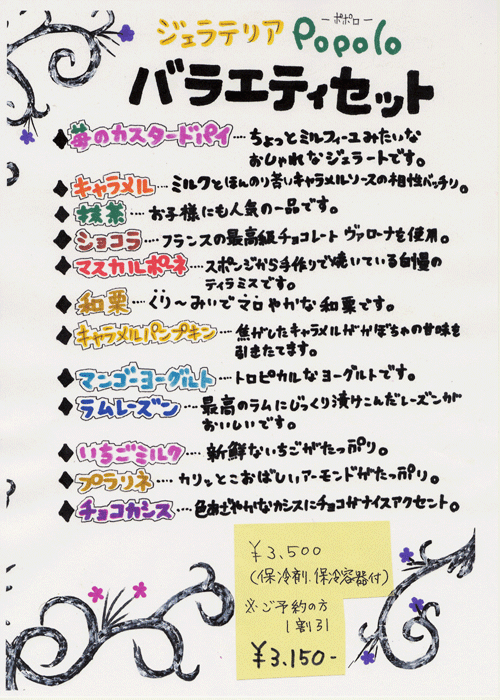 ジェラテリア Popolo
ーポポロー
バラエティセット
◆苺のカスタードパイ…ちょっとミルフィーユみたいな
おしゃれなジェラートです。
◆キャラメル…ミルクとほんのり苦いキャラメルソースの相性バッチリ。
◆抹茶…お子様にも人気の一品です。
◆ショコラ…フランスの最高級チョコレート ヴァローナを使用。
◆マスカルポーネ…スポンジから手作りで焼いている自慢の
ティラミスです。
◆和栗…くり〜みぃでマロやかな和栗です。
◆キャラメルパンプキン…焦がしたキャラメルがかぼちゃの甘味を
引きたてます。
◆マンゴーヨーグルト…トロピカルなヨーグルトです。
◆ラムレーズン…最高のラムにじっくり漬けこんだレーズンが
おいしいです。
◆いちごミルク…新鮮ないちごがたっぷり。
◆プラリネ…カリッとこおばしいアーモンドがたっぷり。
◆チョコカシス…色あざやかなカシスにチョコがナイスアクセント。
¥3,500
(保冷剤.保冷容器付)
※ご予約の方
1割引
¥3.150-